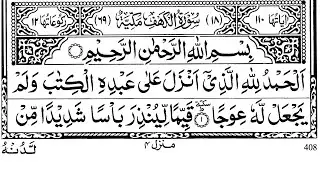 اٰيَاتُهَا ١١٠ (١٨) سُوْرَةُ الْكَهْفِ مَكِّيَّةٌ (٦٩) رُكُوْعَاتُهَا ١٢
بِسْمِ اللّٰهِ الرَّحْمٰنِ الرَّحِيْمِ
اَلْحَمْدُ لِلّٰهِ الَّذِيْٓ اَنْزَلَ عَلٰى عَبْدِهِ الْكِتٰبَ وَلَمْ
يَجْعَلْ لَّهٗ عِوَجًا ۜ ١ قَيِّمًا لِّيُنْذِرَ بَاْسًا شَدِيْدًا مِّنْ
لَّدُنْهُ
منزل ٤
408